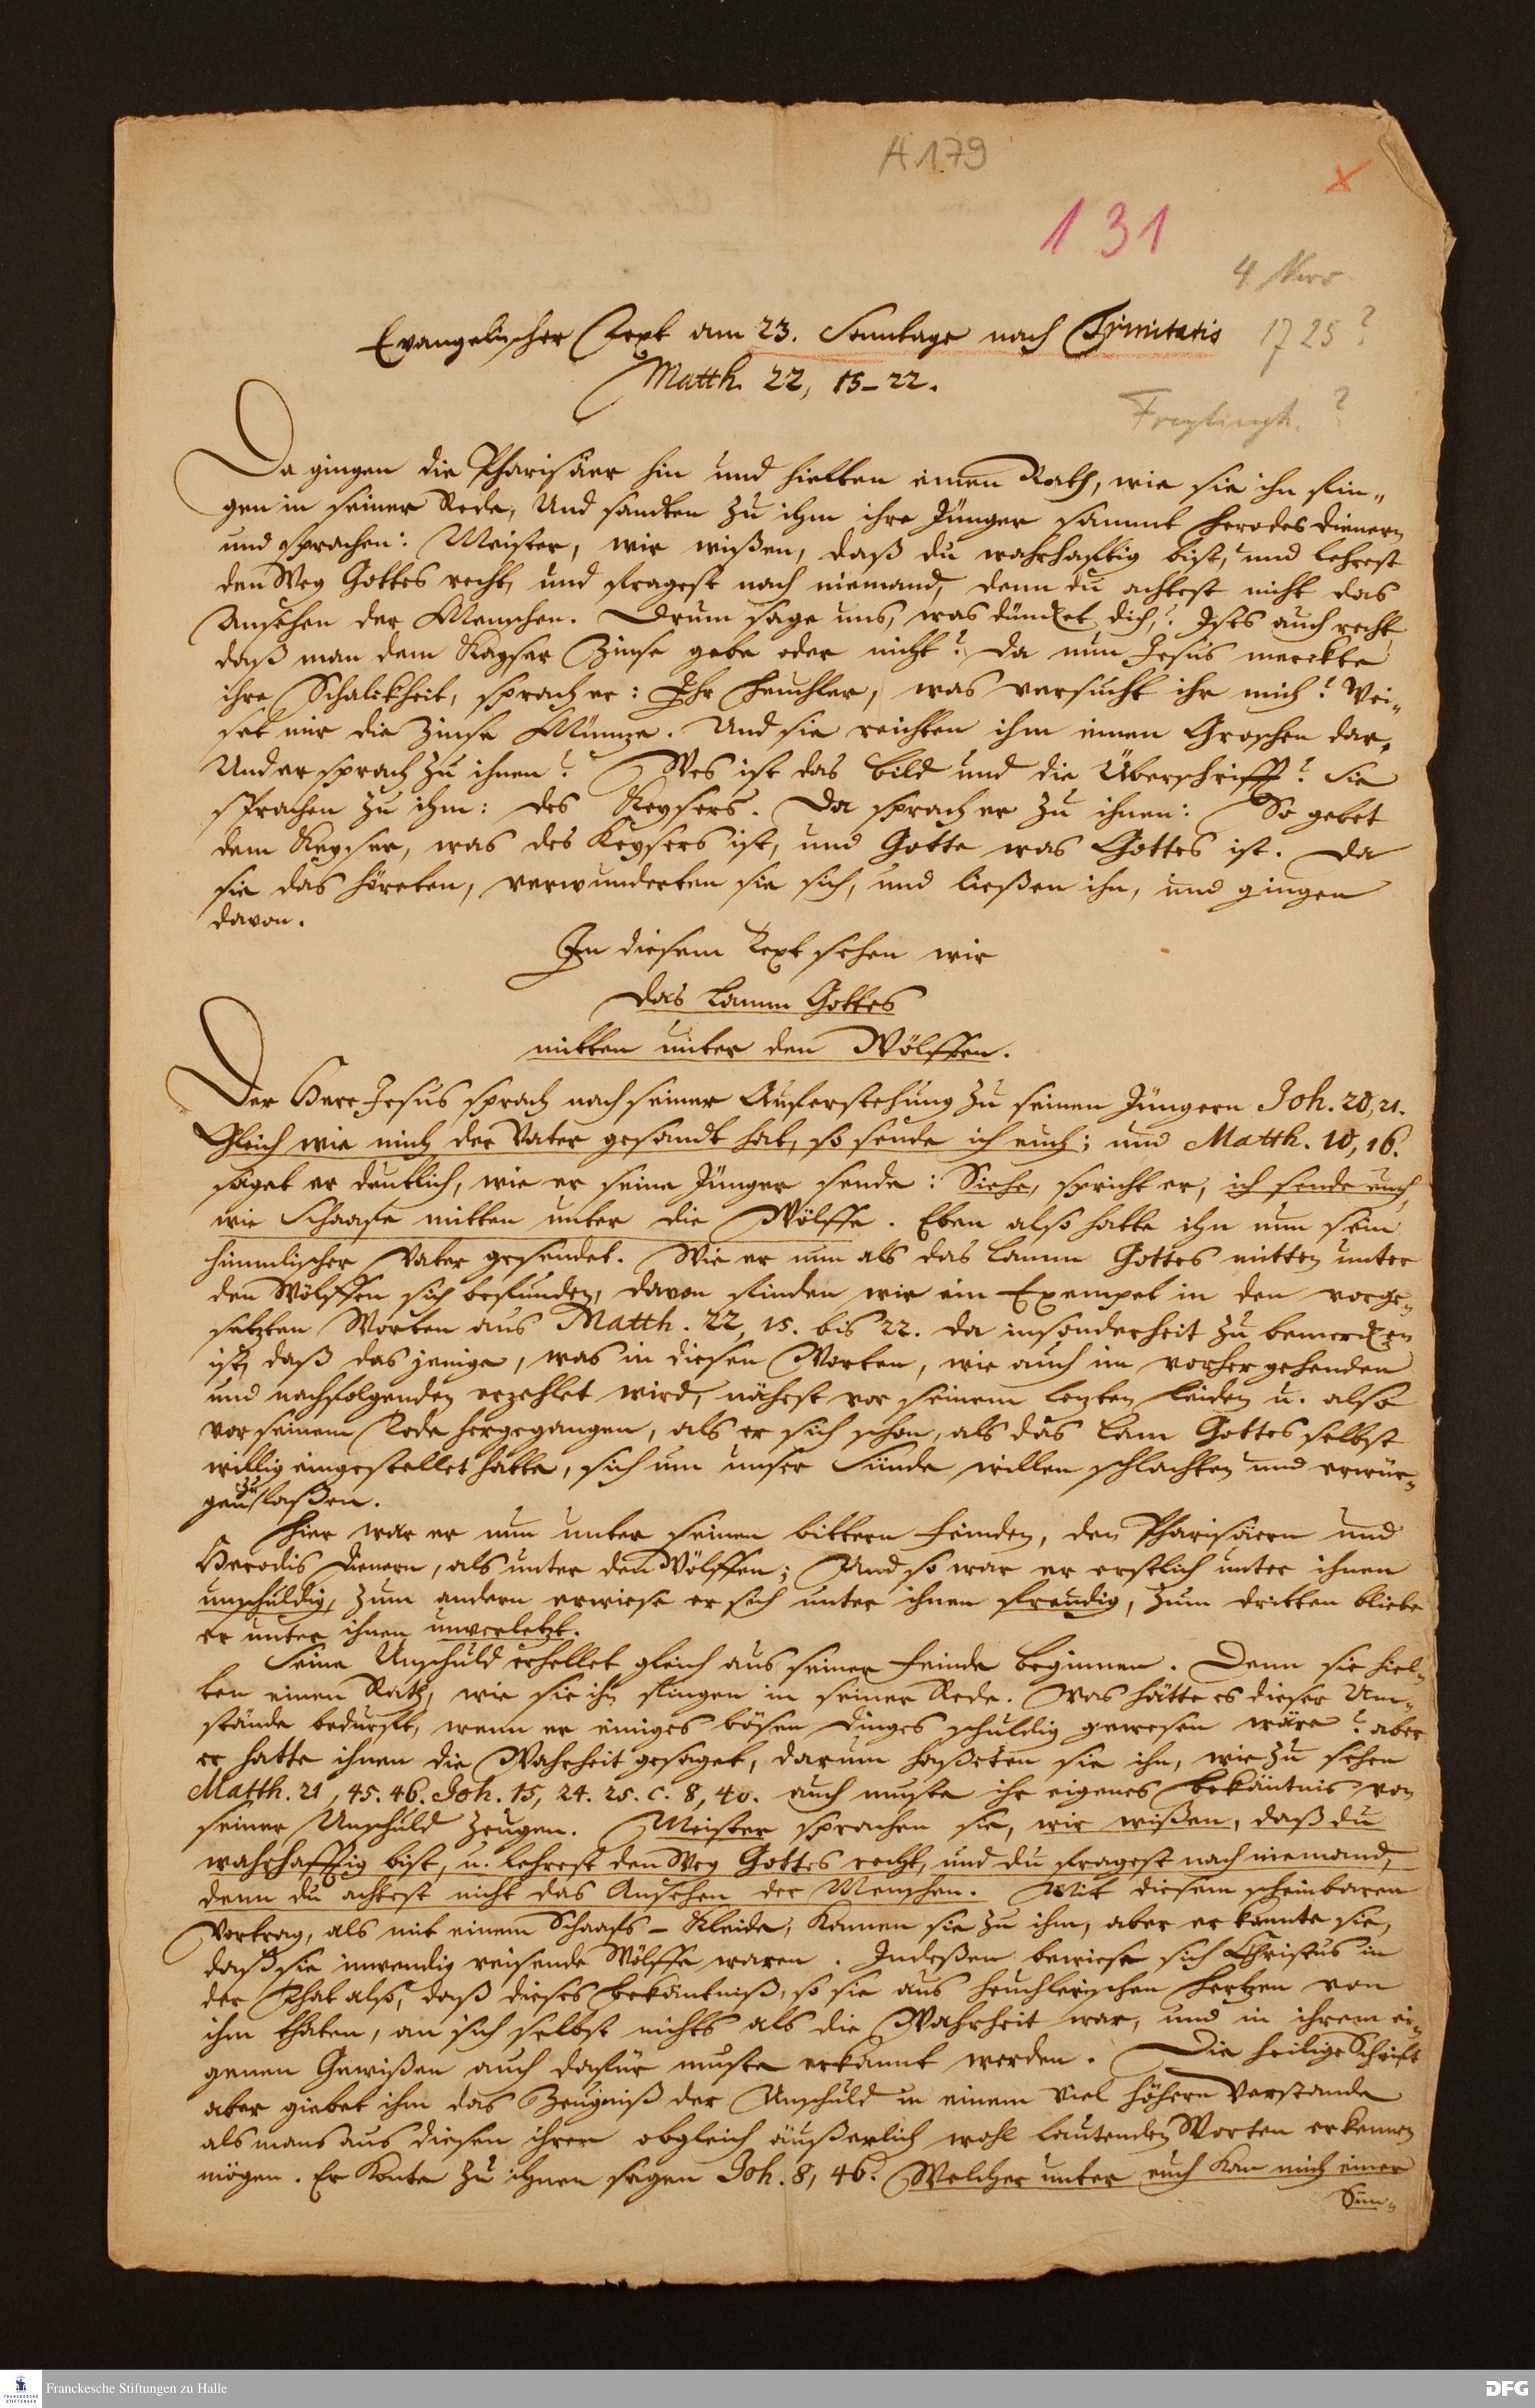 A 179
131
4 Nov
1725?
Evangelischer Text am 23. Sonntage nach Trinitatis
Matth. 22, 15-22.
Freylingh. ?
Da gingen die Pharisäer hin und hielten einen Rath, wie sie ihn fin„
gen in seiner Rede, Und sandten zu ihm ihre Jünger sammt Herodes Dienern
und sprachen: Meister, wir wißen, daß du wahrhafftig bist, und lehrest
den Weg Gottes recht, und fragest nach niemand, denn du achtest nicht das
Ansehen der Menschen. Drum sage uns, was düncket dich,? Ists auch recht
daß man dem Kayser Zinse gebe oder nicht? Da nun Jesus merckte
ihre Schalckheit, sprach er: Ihr Heuchler, was versucht ihr mich? Wei„
set mir die Zinse Müntze. Und sie reichten ihm einen Groschen dar.
Und er sprach zu ihnen? Wes ist das Bild und die Überschrifft? Sie
sprachen zu ihm: des Keysers. Da sprach er zu ihnen: So gebet
dem Keyser, was des Keysers ist, und Gotte was Gottes ist. Da
sie das höreten, verwunderten sie sich, und ließen ihn, und gingen
davon.
In diesem Text sehen wir
das Lamm Gottes
mitten unter den Wölffen.
Der Herr Jesus sprach nach seiner Auferstehung zu seinen Jüngern Joh. 20, 21.
Gleich wie mich der Vater gesandt hat, so sende ich euch; und Matth. 10, 16.
saget er deutlich, wie er seine Jünger sende: Siehe, spricht er, ich sende euch
wie Schaafe mitten unter die Wölffe. Eben also hatte ihn nun sein
himmlischer Vater gesendet. Wie er nun als das Lamm Gottes mitten unter
den Wölffen sich befunden, davon finden wir ein Exempel in den vorge„
setzten Worten aus Matth. 22, 15. bis 22. da insonderheit zu bemercken
ist, daß das jenige, was in diesen Worten, wie auch im vorhergehenden
und nachfolgenden erzehlet wird, nähest vor seinem letzten Leiden u. also
vor seinem Tode hergegangen, als er sich schon, als das Lam Gottes selbst
willig eingestellet hatte, sich um unser Sünde willen schlachten und erwür„
gen zu laßen.
Hier war er nun unter seinen bittern Feinden, den Pharisäern und
Herodis Dienern, als unter den Wölffen; Und so war er erstlich unter ihnen
unschuldig, zum andern erwiese er sich unter ihnen freudig, zum dritten bliebe
er unter ihnen unverletzt.
Seine Unschuld erhellet gleich aus seiner Feinde Beginnen. Denn sie hiel„
ten einen Rath, wie sie ihn fingen in seiner Rede. Was hätte es dieser Um„
stände bedurfft, wenn er einiges bösen Dinges schuldig gewesen wäre? aber
er hatte ihnen die Wahrheit gesaget, darum haßeten sie ihn, wie zu sehen
Matth. 21, 45. 46. Joh. 15, 24. 25. c. 8, 40. auch muste ihr eigenes Bekäntnis von
seiner Unschuld zeugen. Meister sprachen sie, wir wißen, daß du
wahrhafftig bist, u. lehrest den Weg Gottes recht, und du fragest nach niemand,
denn du achtest nicht das Ansehen der Menschen. Mit diesem scheinbaren
Vortrag, als mit einem Schaafs-Kleide, kamen sie zu ihm, aber er kannte sie,
daß sie inwendig reisende Wölffe waren. Indeßen bewiese sich Christus in
der That also, daß dieses Bekäntniß, so sie aus heuchlerischen Hertzen von
ihm thaten, an sich selbst nichts als die Wahrheit war, und in ihrem ei„
genen Gewißen auch dafür muste erkannt werden. Die heilige Schrifft
aber giebet ihm das Zeugniß der Unschuld in einem viel höhern Verstande
als mans aus diesen ihren obgleich äußerlich wohl lautenden Worten erkennen
mögen. Er konte zu ihnen sagen Joh. 8, 46. Welcher unter euch kan mich einer
Sün„
Franckesche Stiftungen zu Halle
FRANCKESCHE STIFTUNGEN
DFG